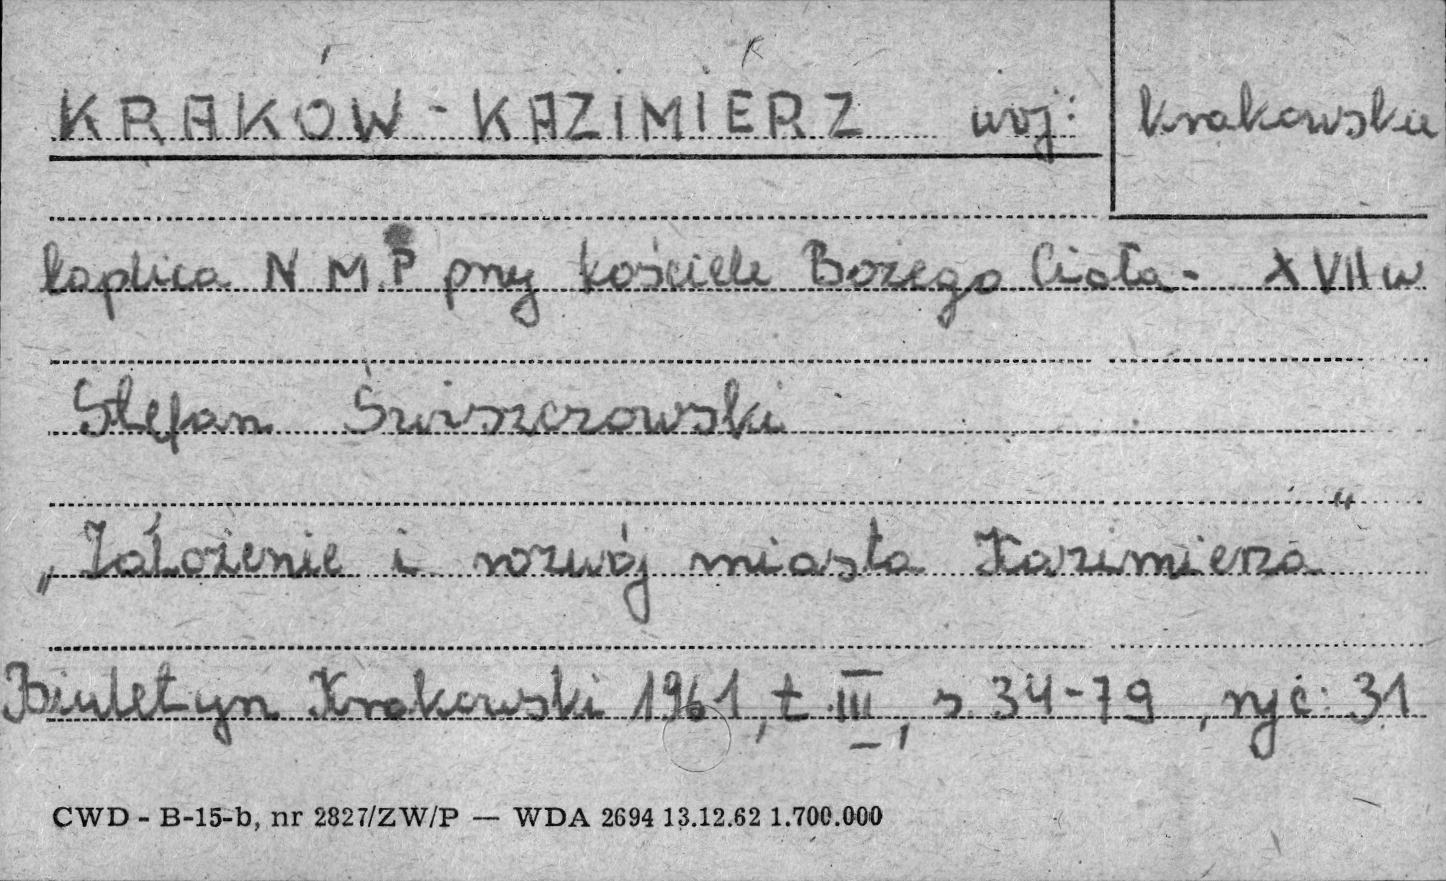 KRAKÓW - KAZIMIERZ woj: krakowskie
kaplica N M P przy kościele Bożego Ciała - XVII w
Stefan Świszczowski
„Założenie i rozwój miasta Kazimierza"
Biuletyn Krakowski 1961, t. III, s. 34-79, ryc: 31
CWD - B-15-b, nr 2827/ZW/P — WDA 2694 13.12.62 1.700.000